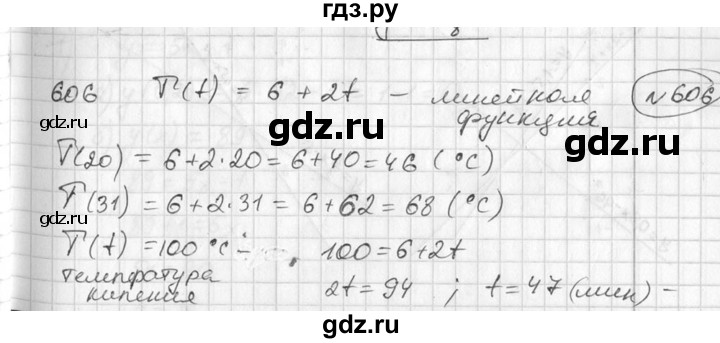 гдз.ру
8
606 T(t) = 6 + 2t – линейная функция №606
T(20) = 6+2·20 = 6+40 = 46 (°C)
T(31) = 6+2·31 = 6+62 = 68 (°C)
T(t) = 100 °C ; 100 = 6+2t
температура кипения 2t = 94 ; t = 47 (мин) –
gdz.ru
gdz.ru
gdz.ru
gdz.ru
gdz.ru
gdz.ru
gdz.ru